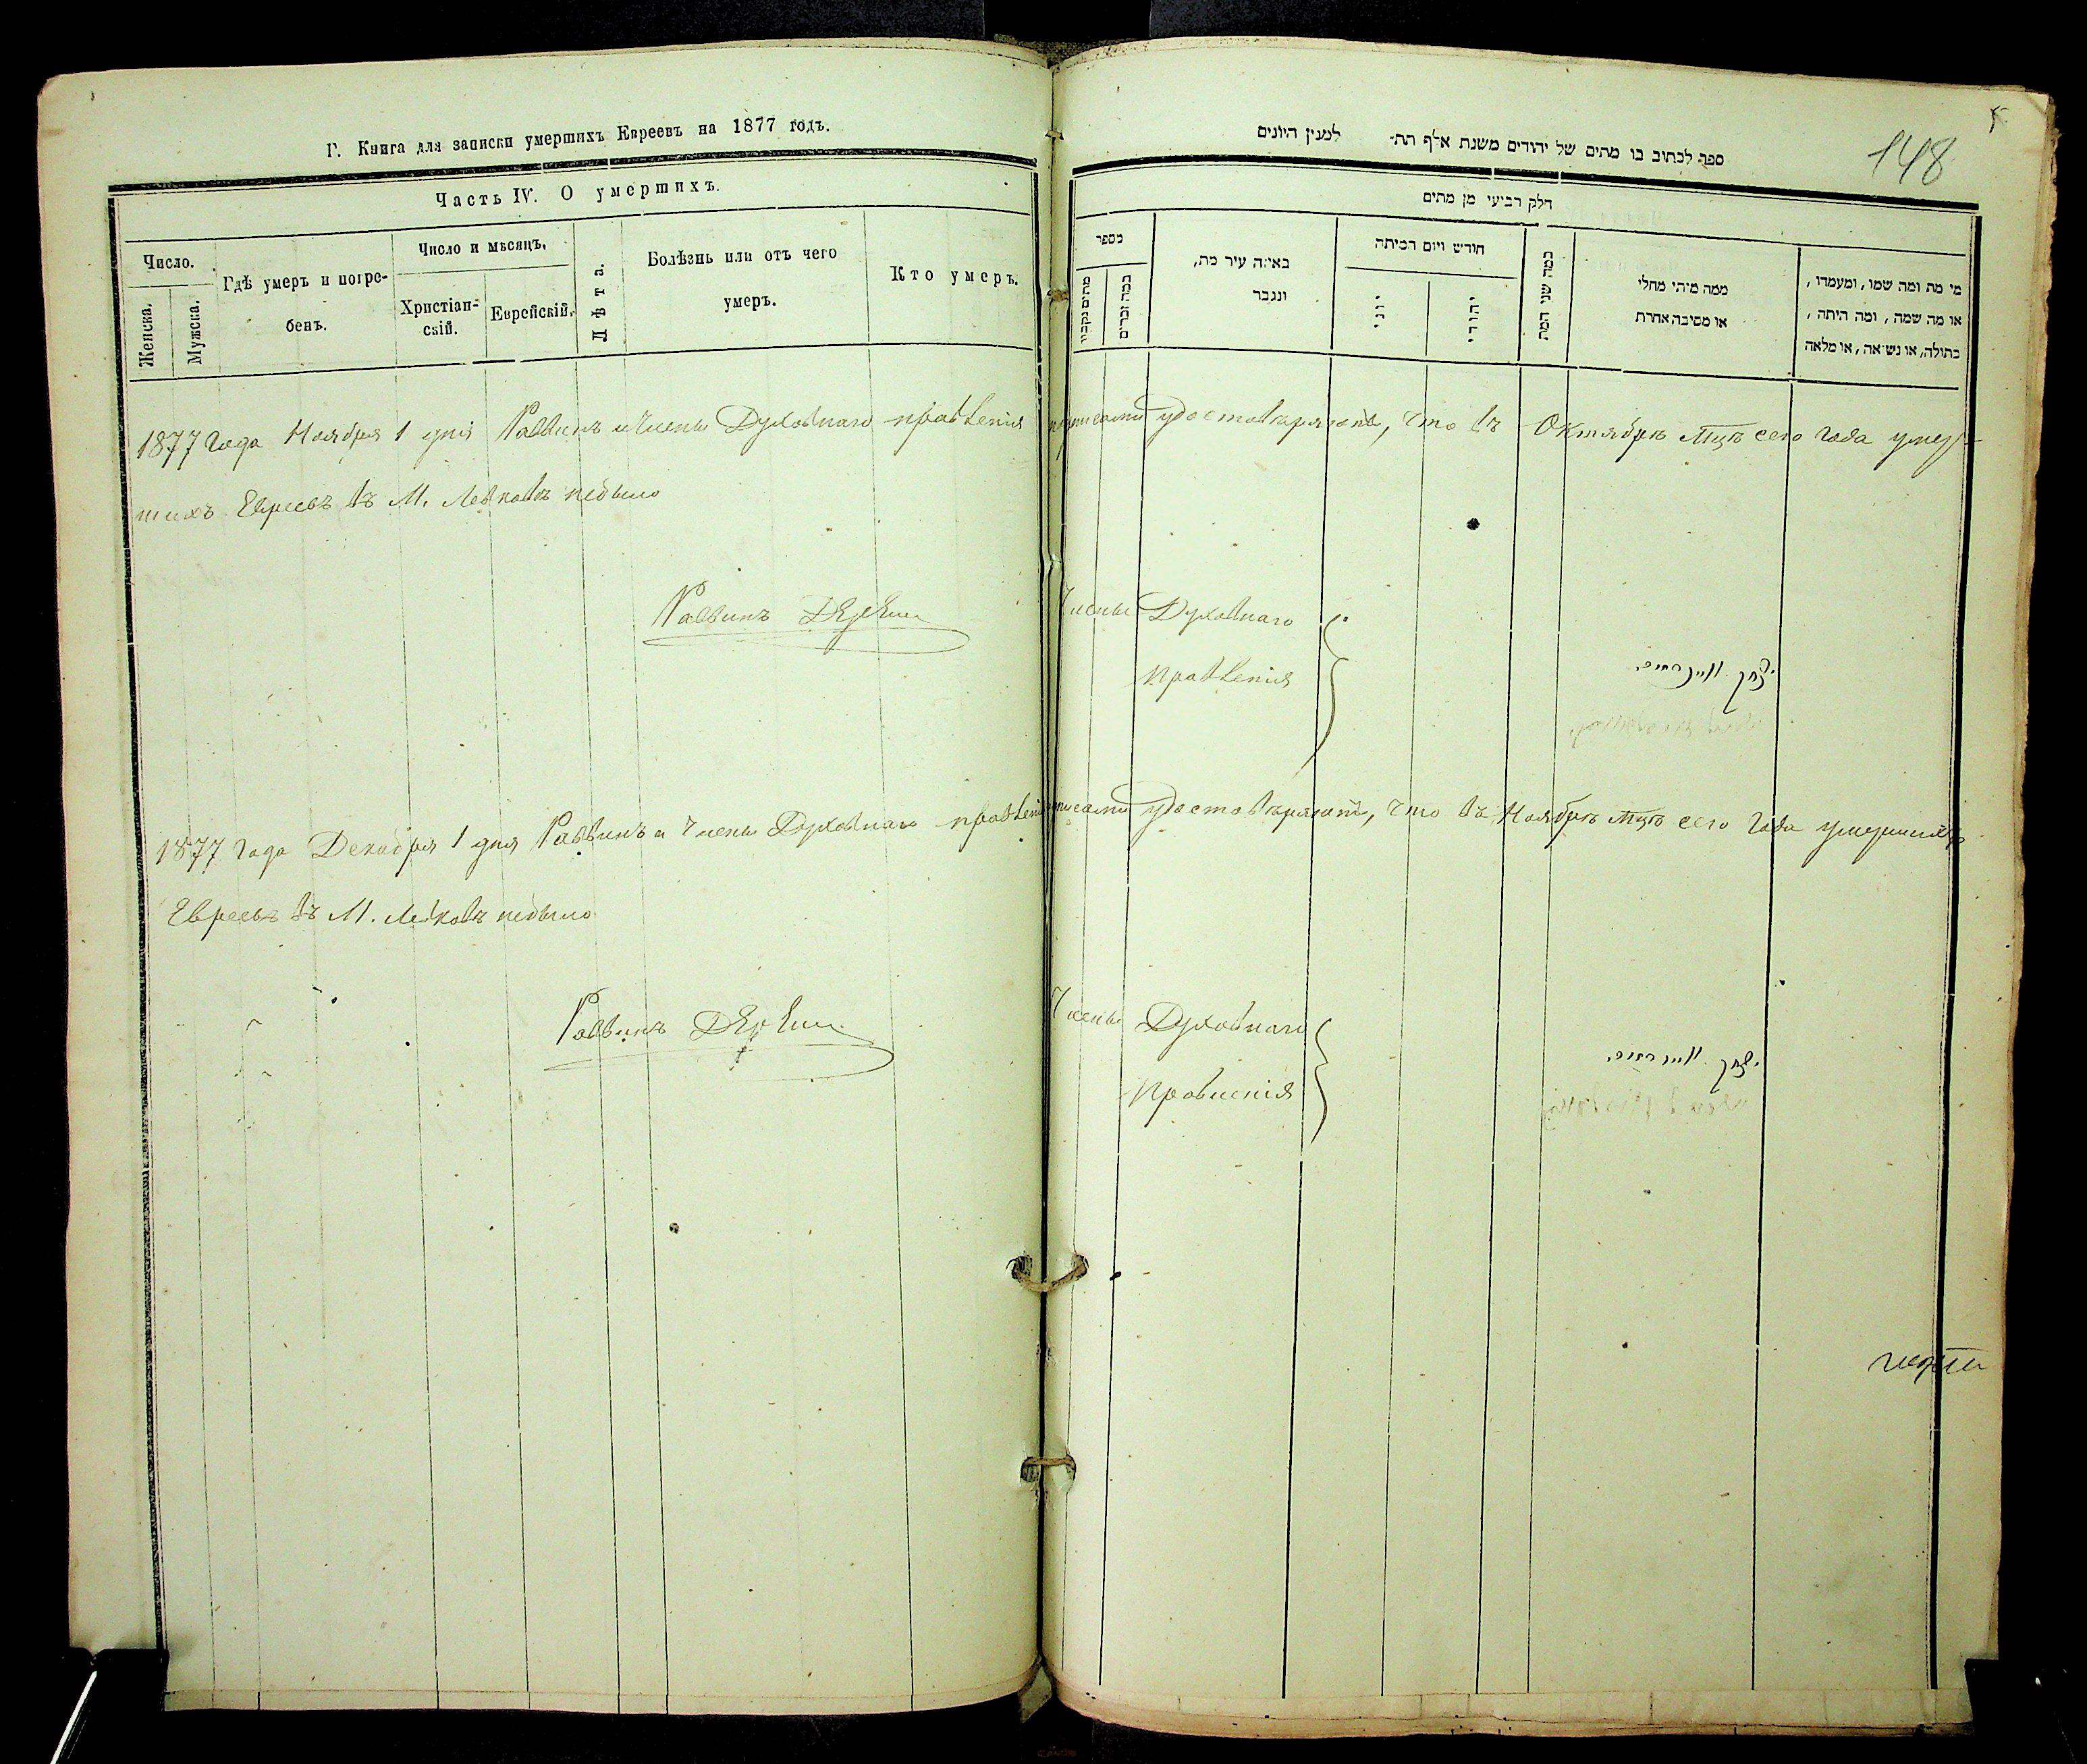 Г. Книга для записки умершихъ Евреевъ на 1877 годъ.
Часть IV. О умершихъ.
Число.
Женска.
Мужска.
Гдѣ умеръ и погре-
бенъ.
Число и мѣсяцъ.
Христіан-
скій.
Еврейскій.
Лѣта.
Болѣзнь или отъ чего
умеръ.
Кто умеръ.
148
ספר לכתוב בו מתים של יהודים משנת אלף תת- למנין היונים
חלק רביעי מן מתים
מספר
באיזה עיר מת,
ונגבר
חודש ויום המיתה
יוני
יהודי
כמה שני המת
ממה מיהי מחלי
או מסיבה אחרת
מי מת ומה שמו, ומעמדו,
או מה שמה, ומה היתה,
בתולה, או נשאה, או מלאה
1877 года Ноября 1 дня Раввинъ и Члены Духовнаго правленія подписами удостовѣряютъ, что въ Октябрѣ мцѣ сего года умер-
шихъ Евреевъ въ М. небыло
Раввинъ
Члены Духовнаго
правленія
1877 года Декабря 1 дня Раввинъ и Члены Духовнаго правленія подписами удостовѣряютъ, что въ Ноябрѣ мцѣ сего года умершихъ
Евреевъ въ М. небыло
Раввинъ
Члены Духовнаго
Правленія